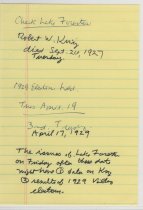 Check Lake Forester
Robert W. King
died Sept. 20, 1927
Tuesday.
1928 Election held
Tues April 19
3rd Tues
April 17, 1929
The issues of Lake Forester
on Friday after these dates
might have ① data on King
② results of 1929 Village
elections.